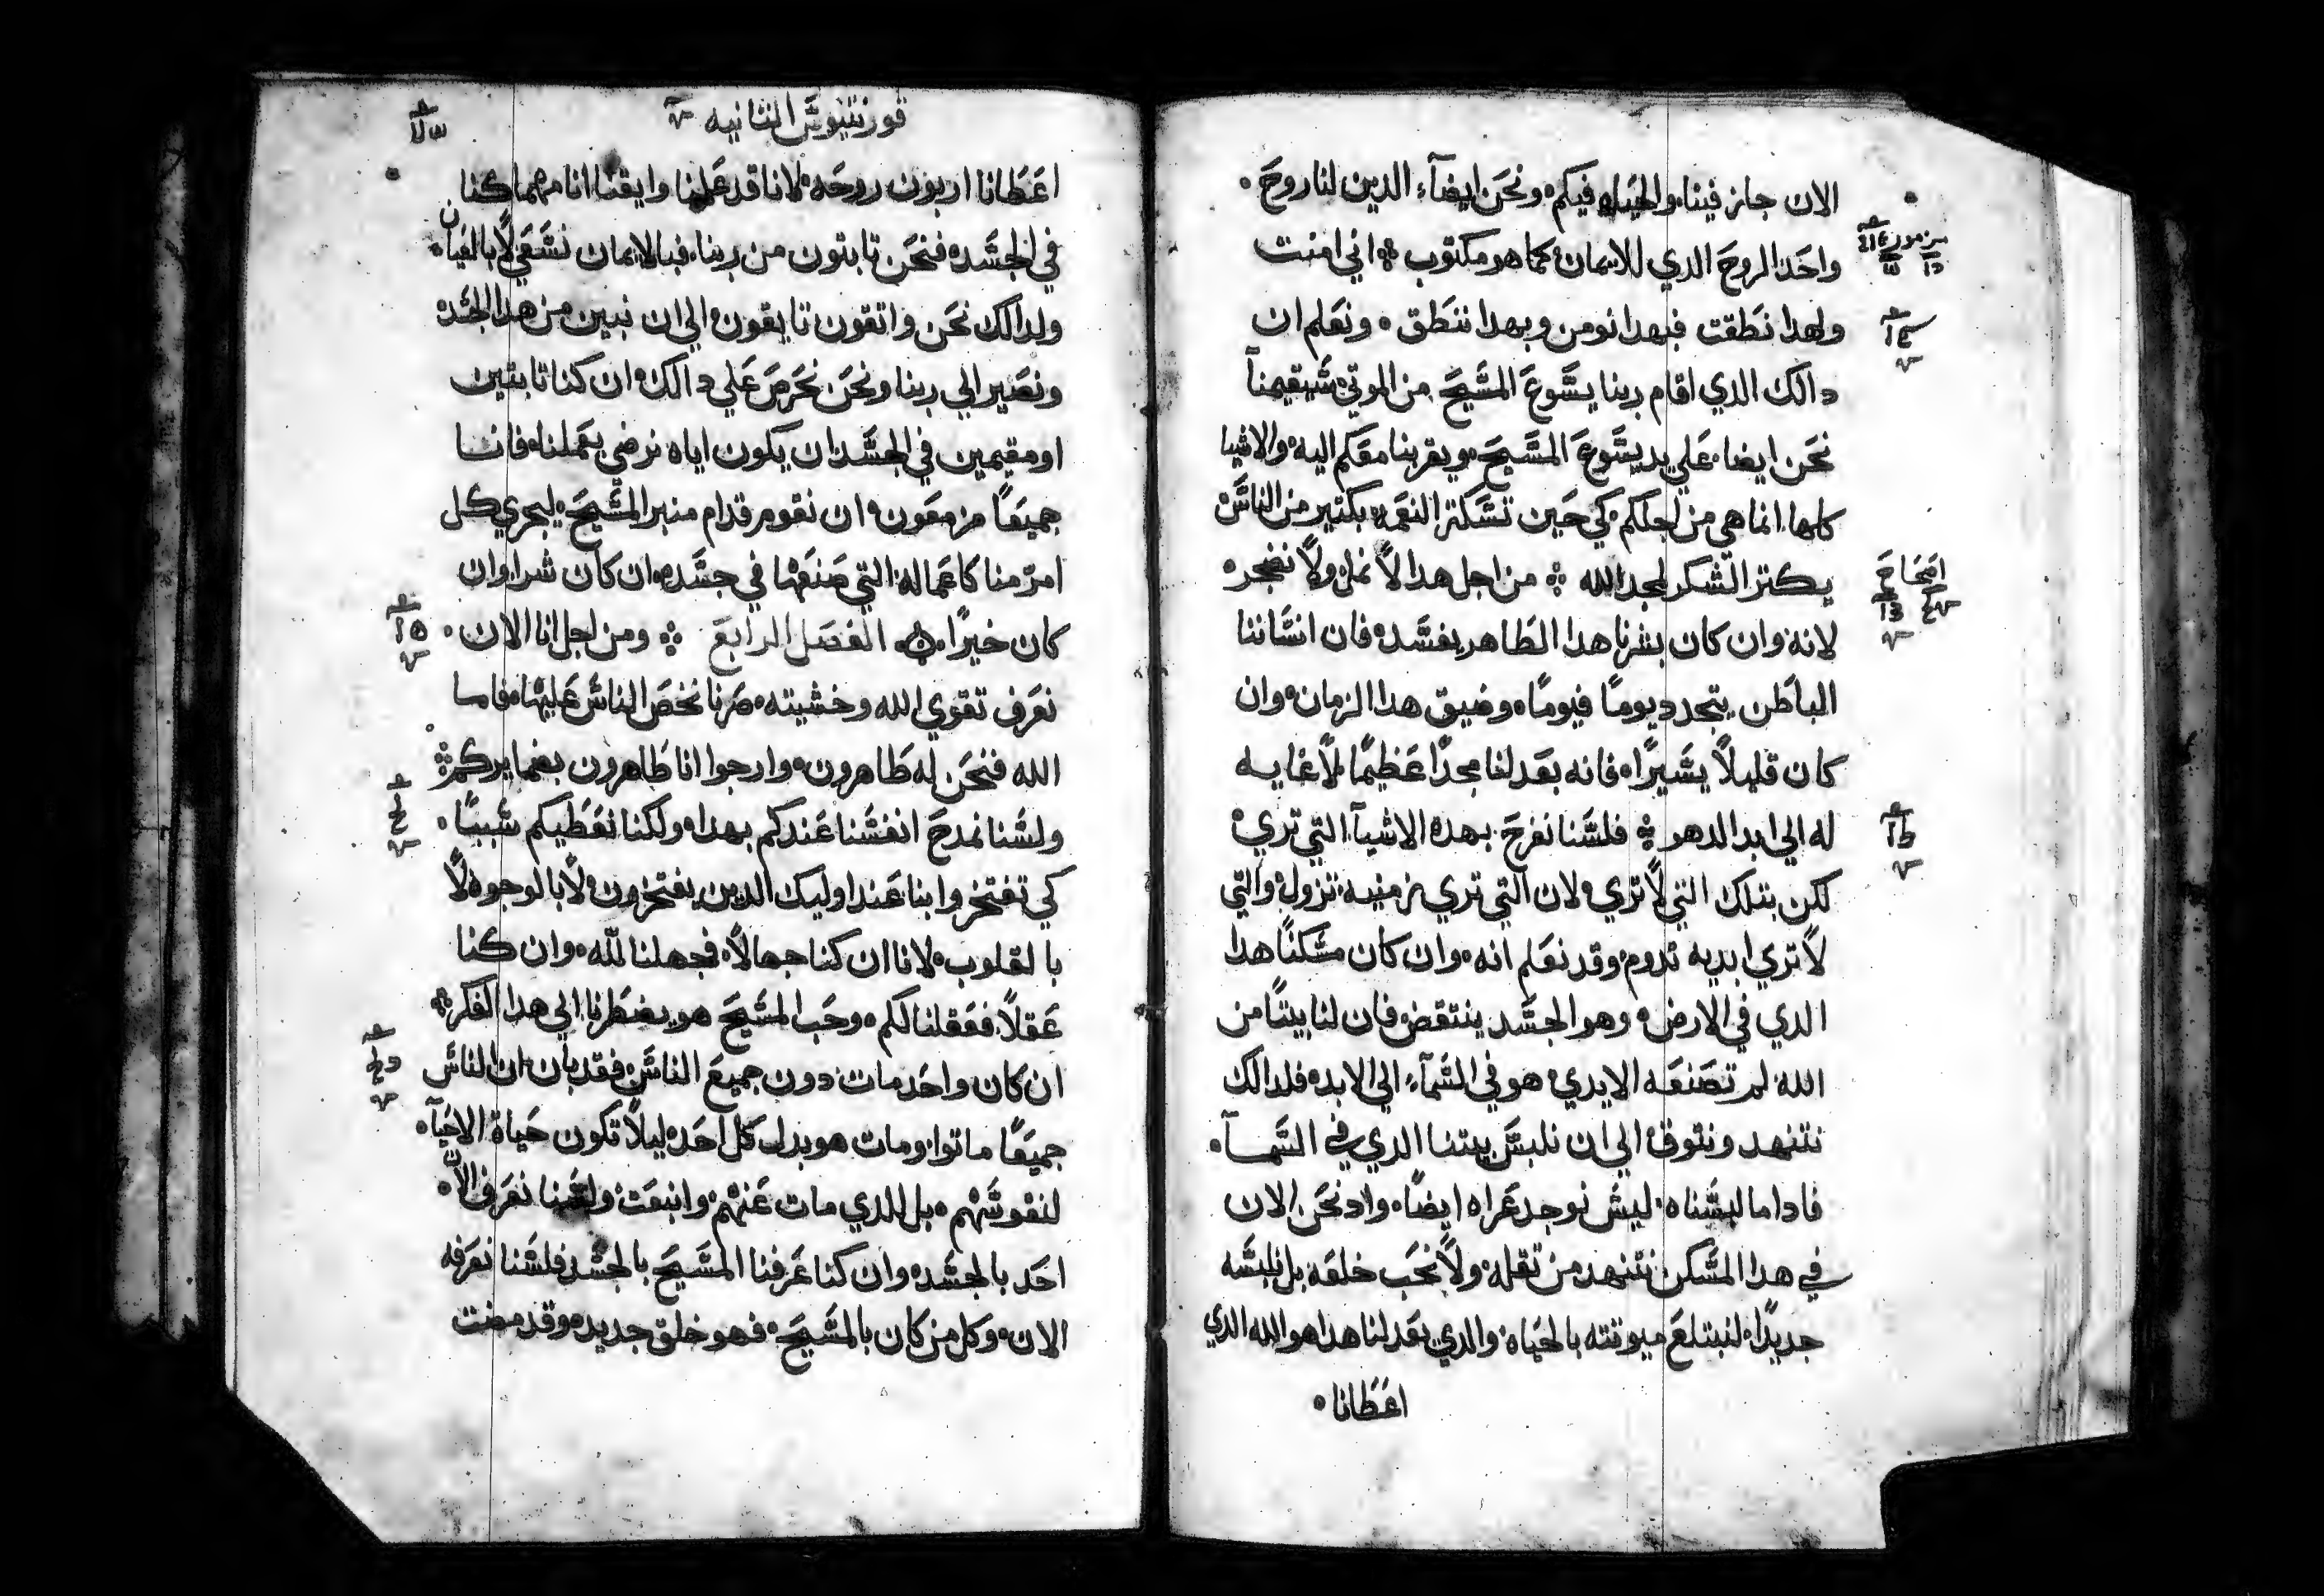 الان جايز فينا. والحَياه فيكم. ونحَن ايضآء الدين لنا روحَ.
واحَد الروحَ الدي للايمان كما هو مكتوب ۞ اني امنت
ولهدا نطَقت فبهدا نومن وبهدا ننطَق. ونعَلم ان
دالك الدي اقام ربنا يشَوعَ المشَيحَ من الموتي شَيقيمنآ
نحَن ايضا. عَلي يد يشَوعَ المشَيحَ. ويقربنا معَكم اليه. والاشيا
كلها انما هي من اجلكم. كي حَين تشَكتر النعَمه بكتير من الناشَ
يكتر الشكر لمجد الله ۞ من اجل هدا لاً نمل ولاً نضجر.
لانه وان كان بشرنا هدا الطَاهر يفشَد. فان انشَاننا
الباطَن يتجدد يومًا فيومًا. وضيق هدا الزمان. وان
كان قليلاً يشَيرًا. فانه يعَد لنا مجدًا عَظيمًا لاً غايه
له الي ابد الدهور ۞ فلشَنا نفرحَ بهده الاشيآ التي تري.
لكن بتلك التي لاً تري. لان التي تري زمنيه تزول. والتي
لاً تري ابديه تدوم. وقد نعَلم انه. وان كان مشَكنًا هدا
الدي في الارض. وهو الجشَد ينتقض. فان لنا بيتًا من
الله. لم تصَنعَه الايدي. هو في الشَمآء الي الابد. فلدالك
نتنهد ونتوق الي ان نلبشَ بيتنا الدي في الشَمآ.
فادا ما لبشَناه. ليشَ نوجد عَراه ايضًا. واد نحَن الان
في هدا المشَكن نتنهد من تقله. ولاً نحَب خلعَه بل نلبشَه
جديدًا. لنبتلعَ ميوتته بالحَياه. والدي يعَد لنا هدا هو الله الدي
اعَطَانا.
قورنتيوشَ التانيه
اعَطَانا اربون روحَه. لانا قد عَلمنا وايقنا انا مهما كنا
في الجشَد. فنحَن تابتون من ربنا. فبالايمان نشَعَي لاً بالعَيان.
ولدالك نحَن واتقون تايقون. الي ان نبين من هدا الجشَد
ونصَير الي ربنا ونحَن نحَرصَ عَلي دالك. ان كنا تابتين
او مقيمين في الجشَد ان يكون اياه نرضي بعَملنا. فانا
جميعًا مزمعَون. ان نقوم قدام منبر المشَيحَ. ليجري كل
امرّ منا كاعَماله التي صَنعَها في جشَده. ان كان شرا وان
كان خيرًا. الفصَل الرابعَ ۞ ومن اجل انا الان.
نعَرف تقوي الله وخشيته. صَرنا نخصَ الناشَ عَليها. فاما
الله فنحَن له طَاهرون. وارجوا انا طَاهرون بضمايركم ۞
ولشَنا نمدحَ انفشَنا عَندكم بهدا. ولكنا نعَطَيكم شَببًا.
كي تفتخروا بنا عَند اوليك الدين يفتخرون. لاً بالوجوه لاً
بالقلوب. لانا ان كنا جهالاً. فجهلنا لله. وان كنا
عَقلاً. فعَقلنا لكم. وحَب المشَيحَ هو يضطَرنا الي هدا الفكر ۞
ان كان واحَد مات دون جميعَ الناشَ. فقد بان ان الناشَ
جميعًا ماتوا. ومات هو بدل كل احَد. ليلاً تكون حَياة الاحَيآ.
لنفوشَهم. بل للدي مات عَنهم. وانبعَت. ولشَنا نعَرف الاًن.
احَد بالجشَد. وان كنا عَرفنا المشَيحَ بالجشَد فلشَنا نعَرفه
الان. وكل من كان بالمشَيحَ. فهو خلق جديد. وقد مضت